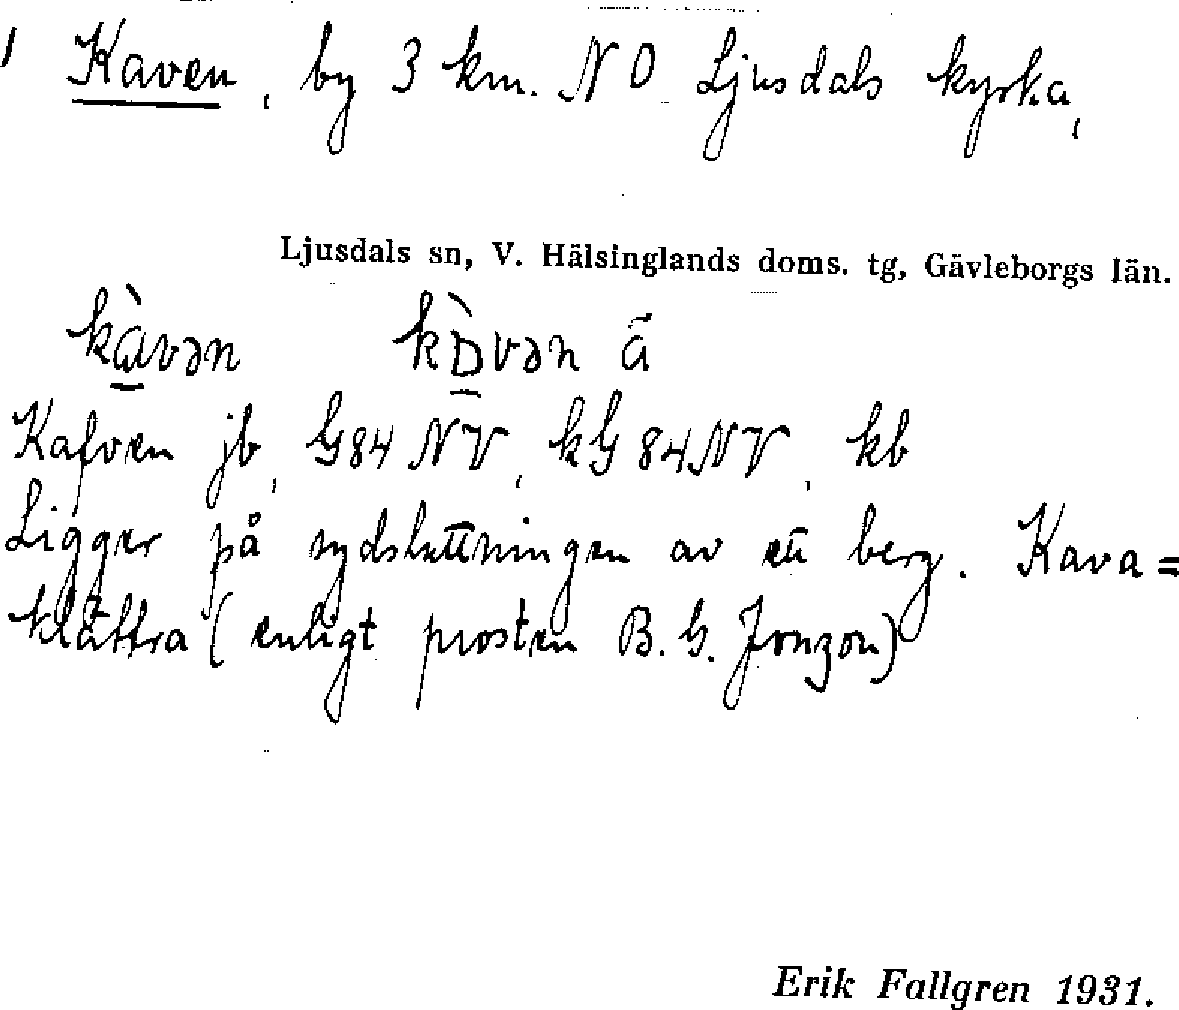 Kaven, by 3 km. NO Ljusdals kyrka,
Ljusdals sn, V. Hälsinglands doms. tg, Gävleborgs län.
kàvən kɒ̀vən ã
Kafven jb, G84 NV, kG 84NV, kb
Ligger på sydsluttningen av ett berg. Kava =
klättra (enligt prosten B. G. Jonzon)
Erik Fallgren 1931.